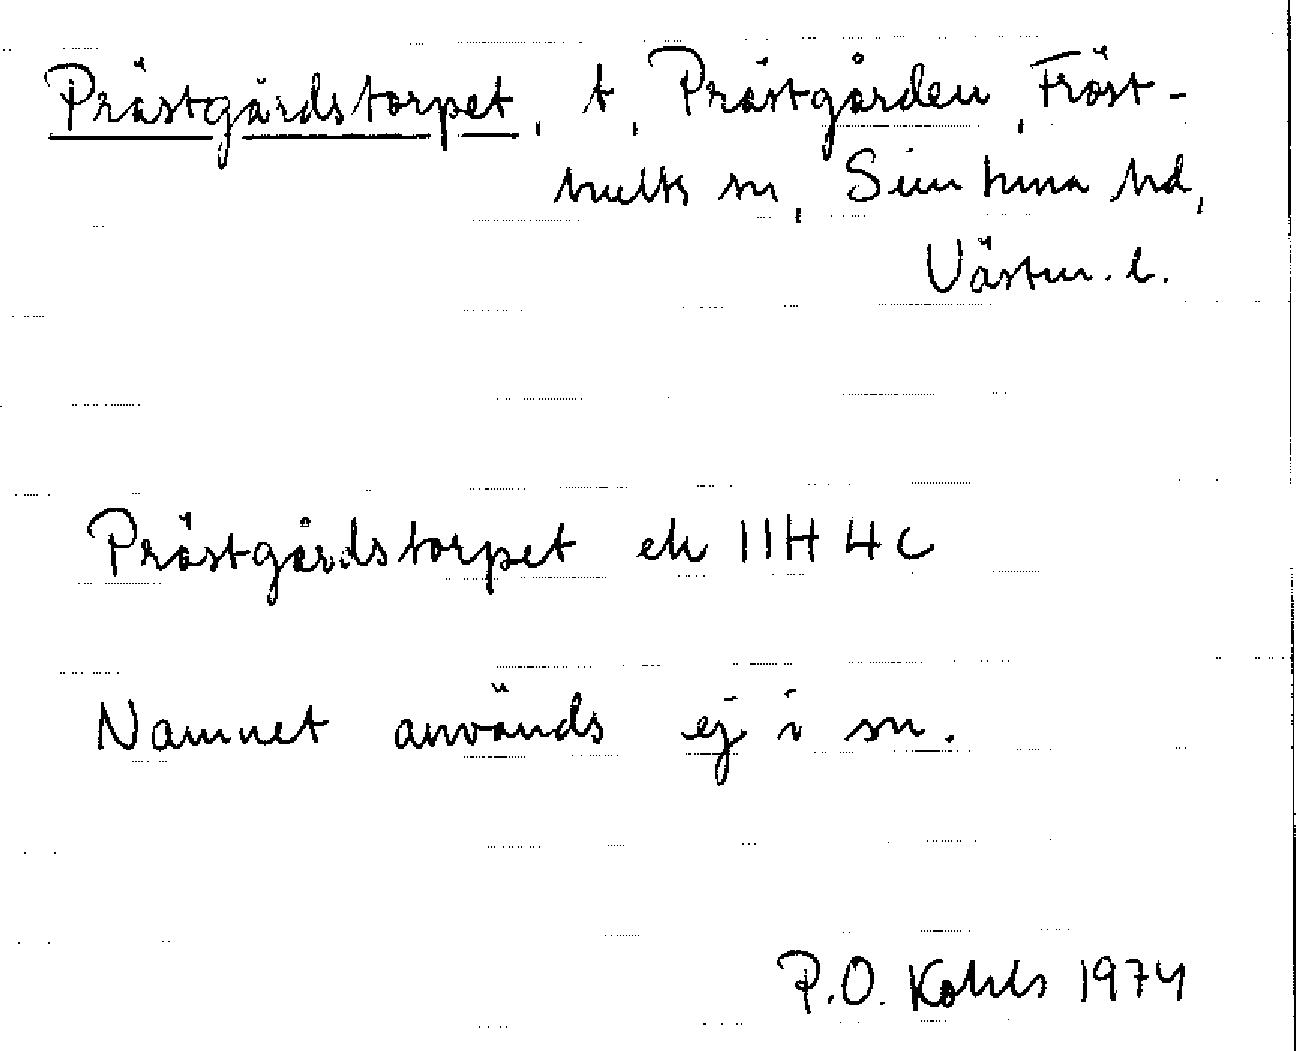 Prästgårdstorpet, t, Prästgården, Fröst-
hults sn, Simtuna hd,
Västm. l.
Prästgårdstorpet ek 11H 4c
Namnet används ej i sn.
P.O. Kohls 1974